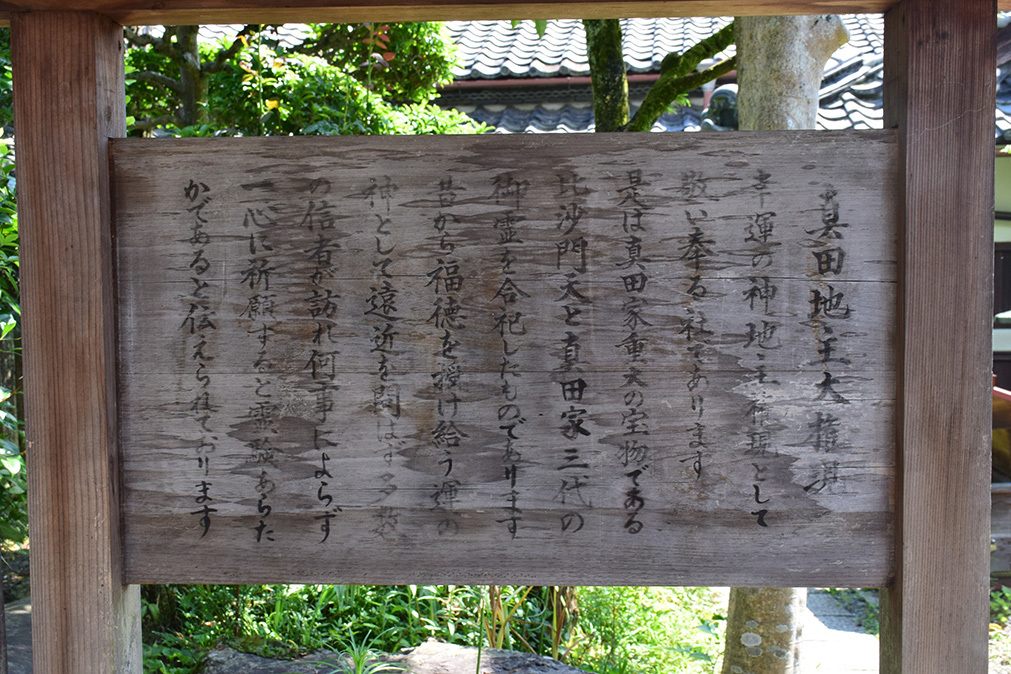 真田地主大権現
幸運の神地主権現として
敬い奉る社であります
是は真田家重大の宝物である
毘沙門天と真田家三代の
御霊を合祀したものであります
昔から福徳を授け給う運の
神として遠近を問はず多数
の信者が訪れ何事によらず
一心に祈願すると霊験あらた
かであると伝えられております